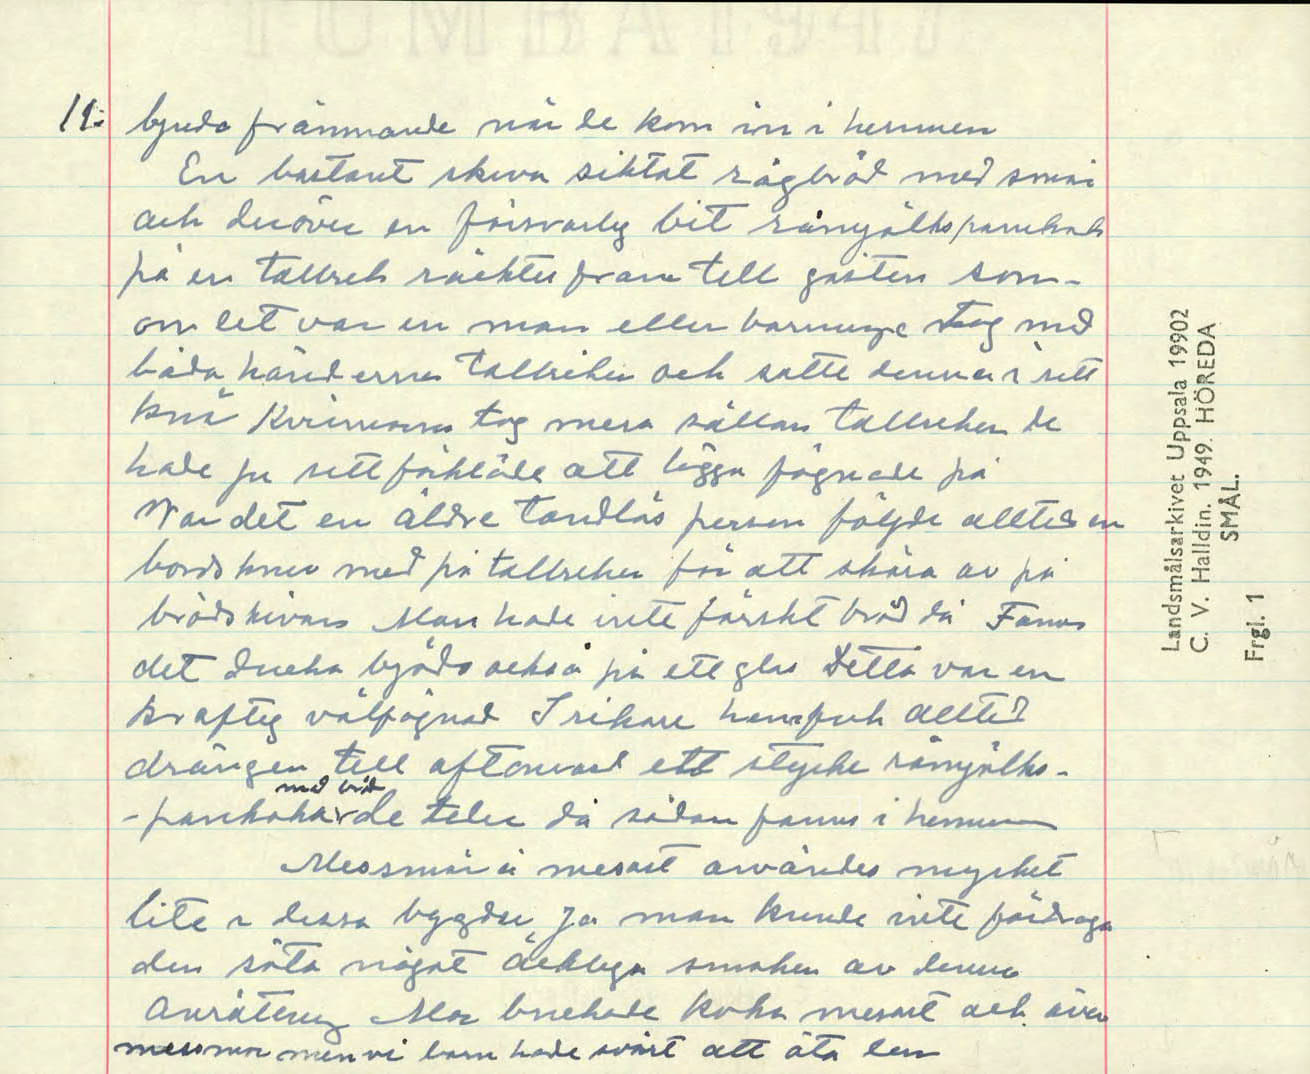 11.
bjuda främmande när de kom in i hemmen
En bastant skiva siktat rågbröd med smör
och deröver en försvarlig bit råmjölkspannkak
på en tallrek räcktes fram till gästen som-
om det var en man eller barnunge tog med
båda händerna tallreken och satte denna i sitt
knä Kvinnorna tog mera sällan tallreken de
hade ju sitt förkläde att lägga fögnade på
Var det en äldre tandlös person följde alltid en
bordskniv med på tallreken för att skära av på
brödskivan Man hade inte färskt bröd då Fanns
det dricka bjöds också på ett glas Detta var en
kraftig välfögnad I rikare hem fick alltid
drängen till aftonvard ett stycke råmjölks-
med bröd
-pankaka de tider då sådan fanns i hemmen
Messmör o mesost användes mycket
lite i dessa bygder Ja man kunde inte fördraga
den söta något äckliga smaken av denna
anrätning Mor brukade koka mesost och även
messmör men vi barn hade svårt att äta den
Landsmålsarkivet Uppsala 19902
C. V. Halldin. 1949. HÖREDA
SMÅL.
Frgl. 1